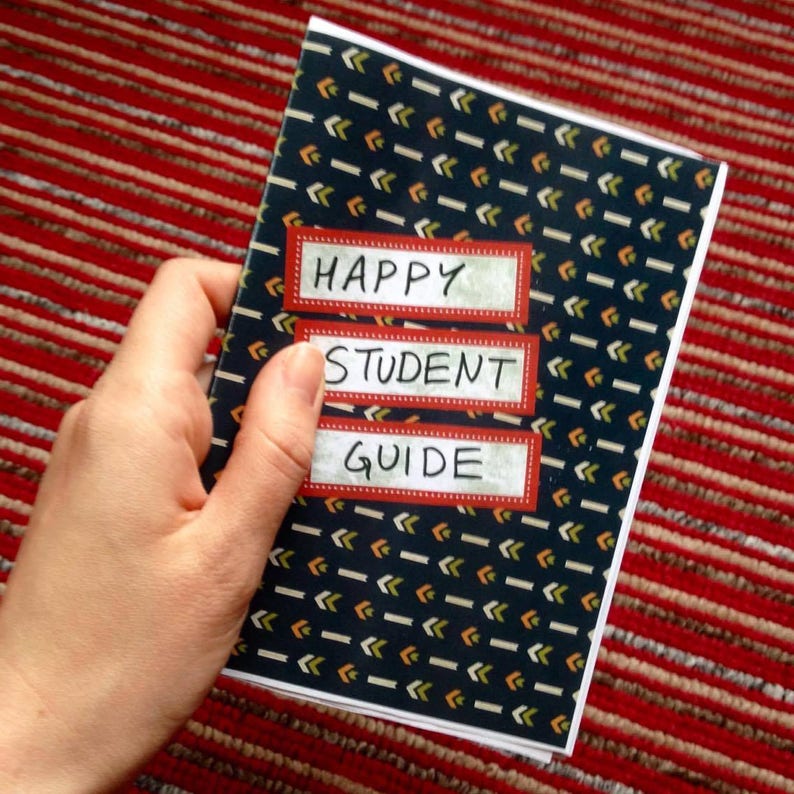 HAPPY
STUDENT
GUIDE